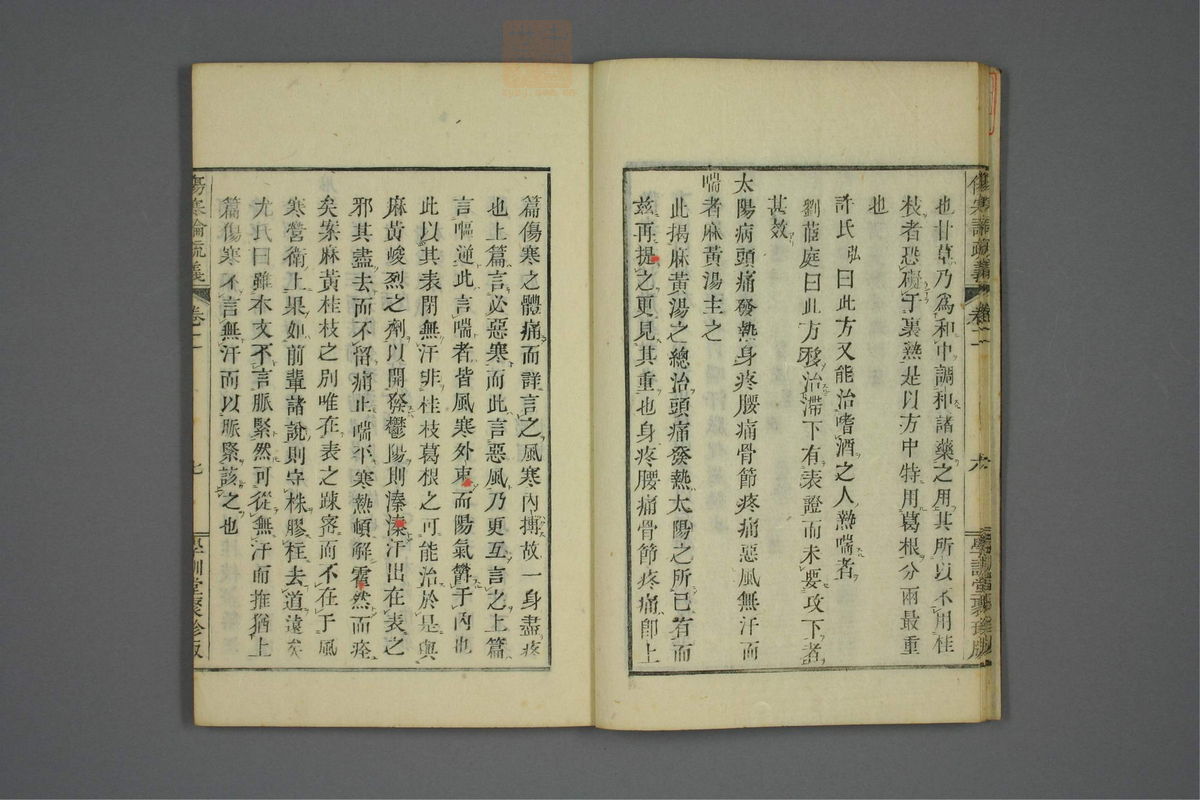 傷寒論疏義 卷二 六 學訓堂聚珍版
也甘草乃爲和中調和諸藥之用其所以不用桂
枝者恐礙于裏熱是以方中特用葛根分兩最重
也
許氏弘曰此方又能治嗜酒之人熱喘者
劉茝庭曰此方移治滯下有表證而未要攻下者
甚效
太陽病頭痛發熱身疼腰痛骨節疼痛惡風無汗而
喘者麻黃湯主之
此揭麻黃湯之總治頭痛發熱太陽之所已有而
茲再提之更見其重也身疼腰痛骨節疼痛卽上
篇傷寒之體痛而詳言之風寒內搏故一身盡疼
也上篇言必惡寒而此言惡風乃更互言之上篇
言嘔逆此言喘者皆風寒外束而陽氣鬱于內也
此以其表閉無汗非桂枝葛根之可能治於是與
麻黃峻烈之劑以開發鬱陽則溱溱汗出在表之
邪其盡去而不留痛止喘平寒熱頓解霍然而痊
矣案麻黃桂枝之別唯在表之疎窓而不在于風
寒營衛上果如前輩諸說則守株膠柱去道遠矣
尤氏曰雖本文不言脈緊然可從無汗而推猶上
篇傷寒不言無汗而以脈緊該之也
傷寒論疏義 卷二 七 學訓堂聚珍版